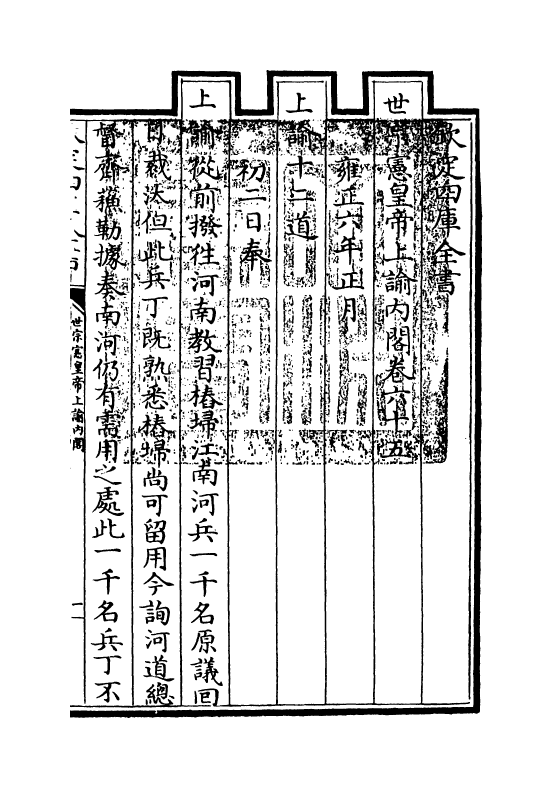 欽定四庫全書
世宗憲皇帝上諭內閣卷六十五
雍正六年正月
上諭十二道
初二日奉
上諭從前撥往河南教習樁埽江南河兵一千名原議回
日裁汰但此兵丁既熟悉樁埽尚可留用今詢河道總
督齊蘇勒據奏南河仍有需用之處此一千名兵丁不
世宗憲皇帝上諭內閣